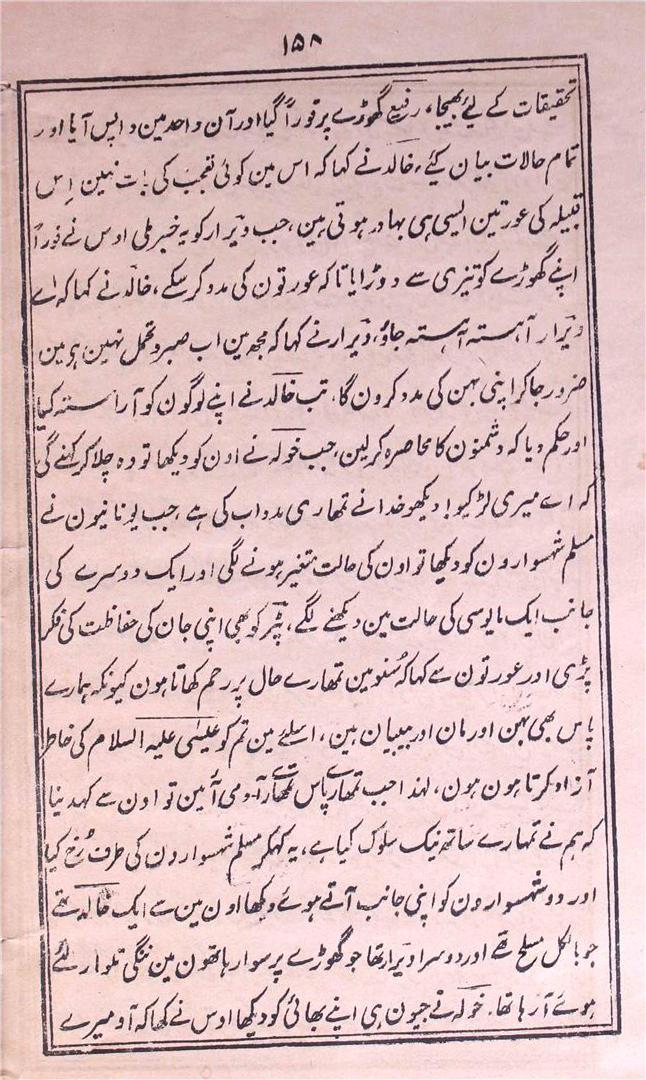 ۱۵۸
تحقیقات کے لیٔے بھیجا، رفیع گھوڑے پر فوراً گیا اور آن واحد مین واپس آیا اور
تمام حالات بیان کیٔے، خالد نے کہا کہ اس مین کوئی تعجب کی بات نہین اِس
قبیلہ کی عورتین ایسی ہی بہادر ہوتی ہین، جب ویٗرار کو یہ خبر ملی اوس نے فوراً
اپنے گھوڑے کو تیزی سے دوڑایا تا کہ عورتون کی مدد کر سکے، خالد نے کہا کہ اے
ویٗرار آہستہ آہستہ جاؤ، ویٗرار نے کہا کہ مجھ مین اب صبر و تحمل نہین ہر مین
ضرور جا کر اپنی بہن کی مدد کرون گا، تب خالد نے اپنے لوگون کو آراستہ کیا
اور حکم دیا کہ دشمنون کا محاصرہ کر لین، جب خولہ نے اون کو دیکھا تو وہ چلا کر کہنے لگی
کہ اے میری لڑکیو! دیکھو خدا نے تمھاری مدد اب کی ہے، جب یونانیون نے
مسلم شہسوارون کو دیکھا تو اون کی حالت متغیر ہونے لگی اور ایک دوسرے کی
جانب ایک مایوسی کی حالت مین دیکھنے لگے، پٹیر کو بھی اپنی جان کی حفاظت کی فکر
پڑی اور عورتون سے کہا کہ سُنو مین تمھارے حال پر رحم کھاتا ہون کیونکہ ہمارے
پاس بھی بہن اور مان اور بیبیان ہین، اسلئے مین تم کو عیسٰی علیہ السلام کی خاطر
آزاد کرتا ہون ہون، لہذا جب تمھارے پاس تمھارے آدمی آئین تو اون سے کہدینا
کہ ہم نے تمہارے ساتھ نیک سلوک کیا ہے، یہ کہکر مسلم شہسوارون کی طرف رُخ کیا
اور دو شہسوارون کو اپنی جانب آتے ہوے دیکھا اون مین سے ایک خالد تھے
جو بالکل مسلح تھے اور دوسرا ویرار تھا جو گھوڑے پر سوار ہاتھون مین ننگی تلوار لئے
ہوئے آ رہا تھا، خولہ نے جیون ہی اپنے بھائی کو دیکھا اوس نے کھا کہ آو میرے